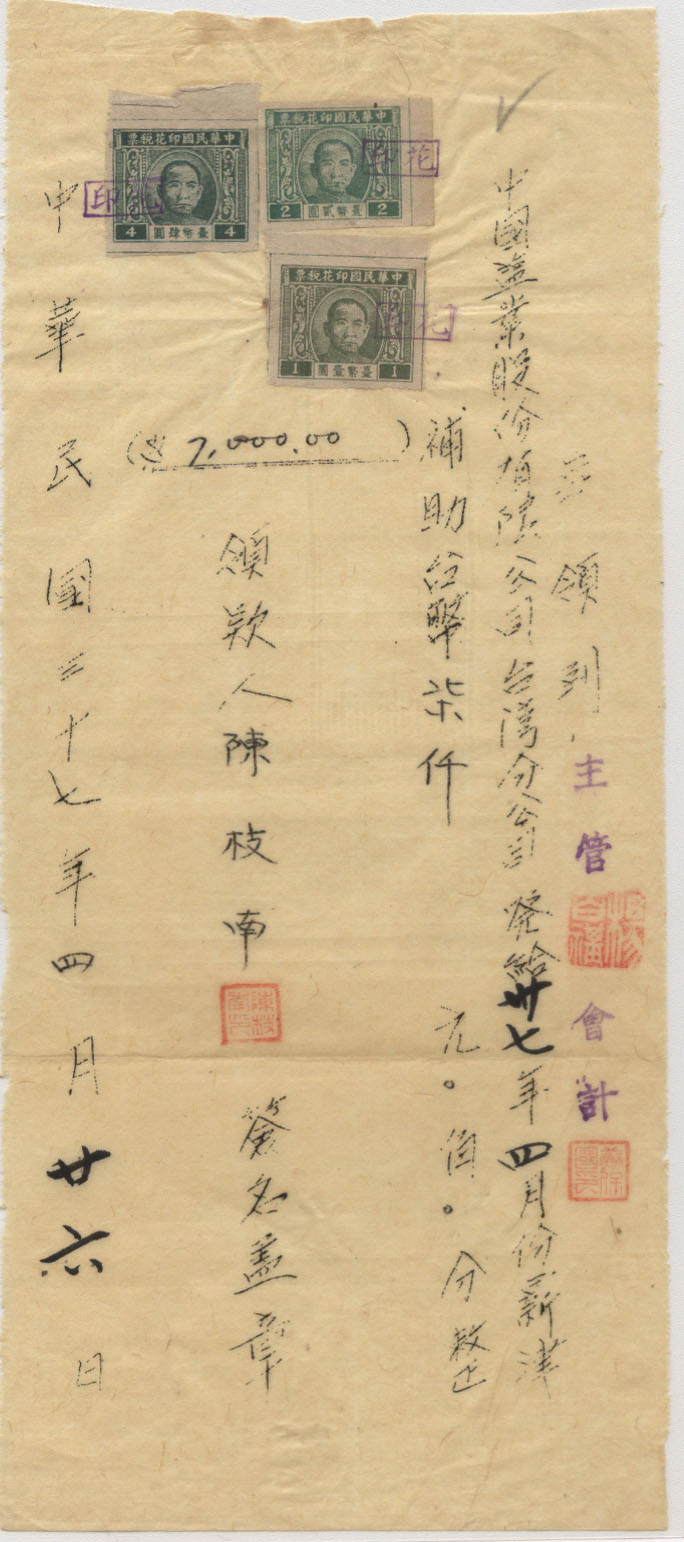 茲領到
主管 會計
中國鹽業股份有限公司台灣分公司發給卅七年四月份薪津
補助台幣柒仟 元〇角〇分整
($7,000.00)
領款人陳枝南 簽名蓋章
陳枝南印
中華民國三十七年四月廿六日
中華民國印花稅票
2 臺幣貳圓 2
印花
中華民國印花稅票
4 臺幣肆圓 4
印花
中華民國印花稅票
1 臺幣壹圓 1
印花